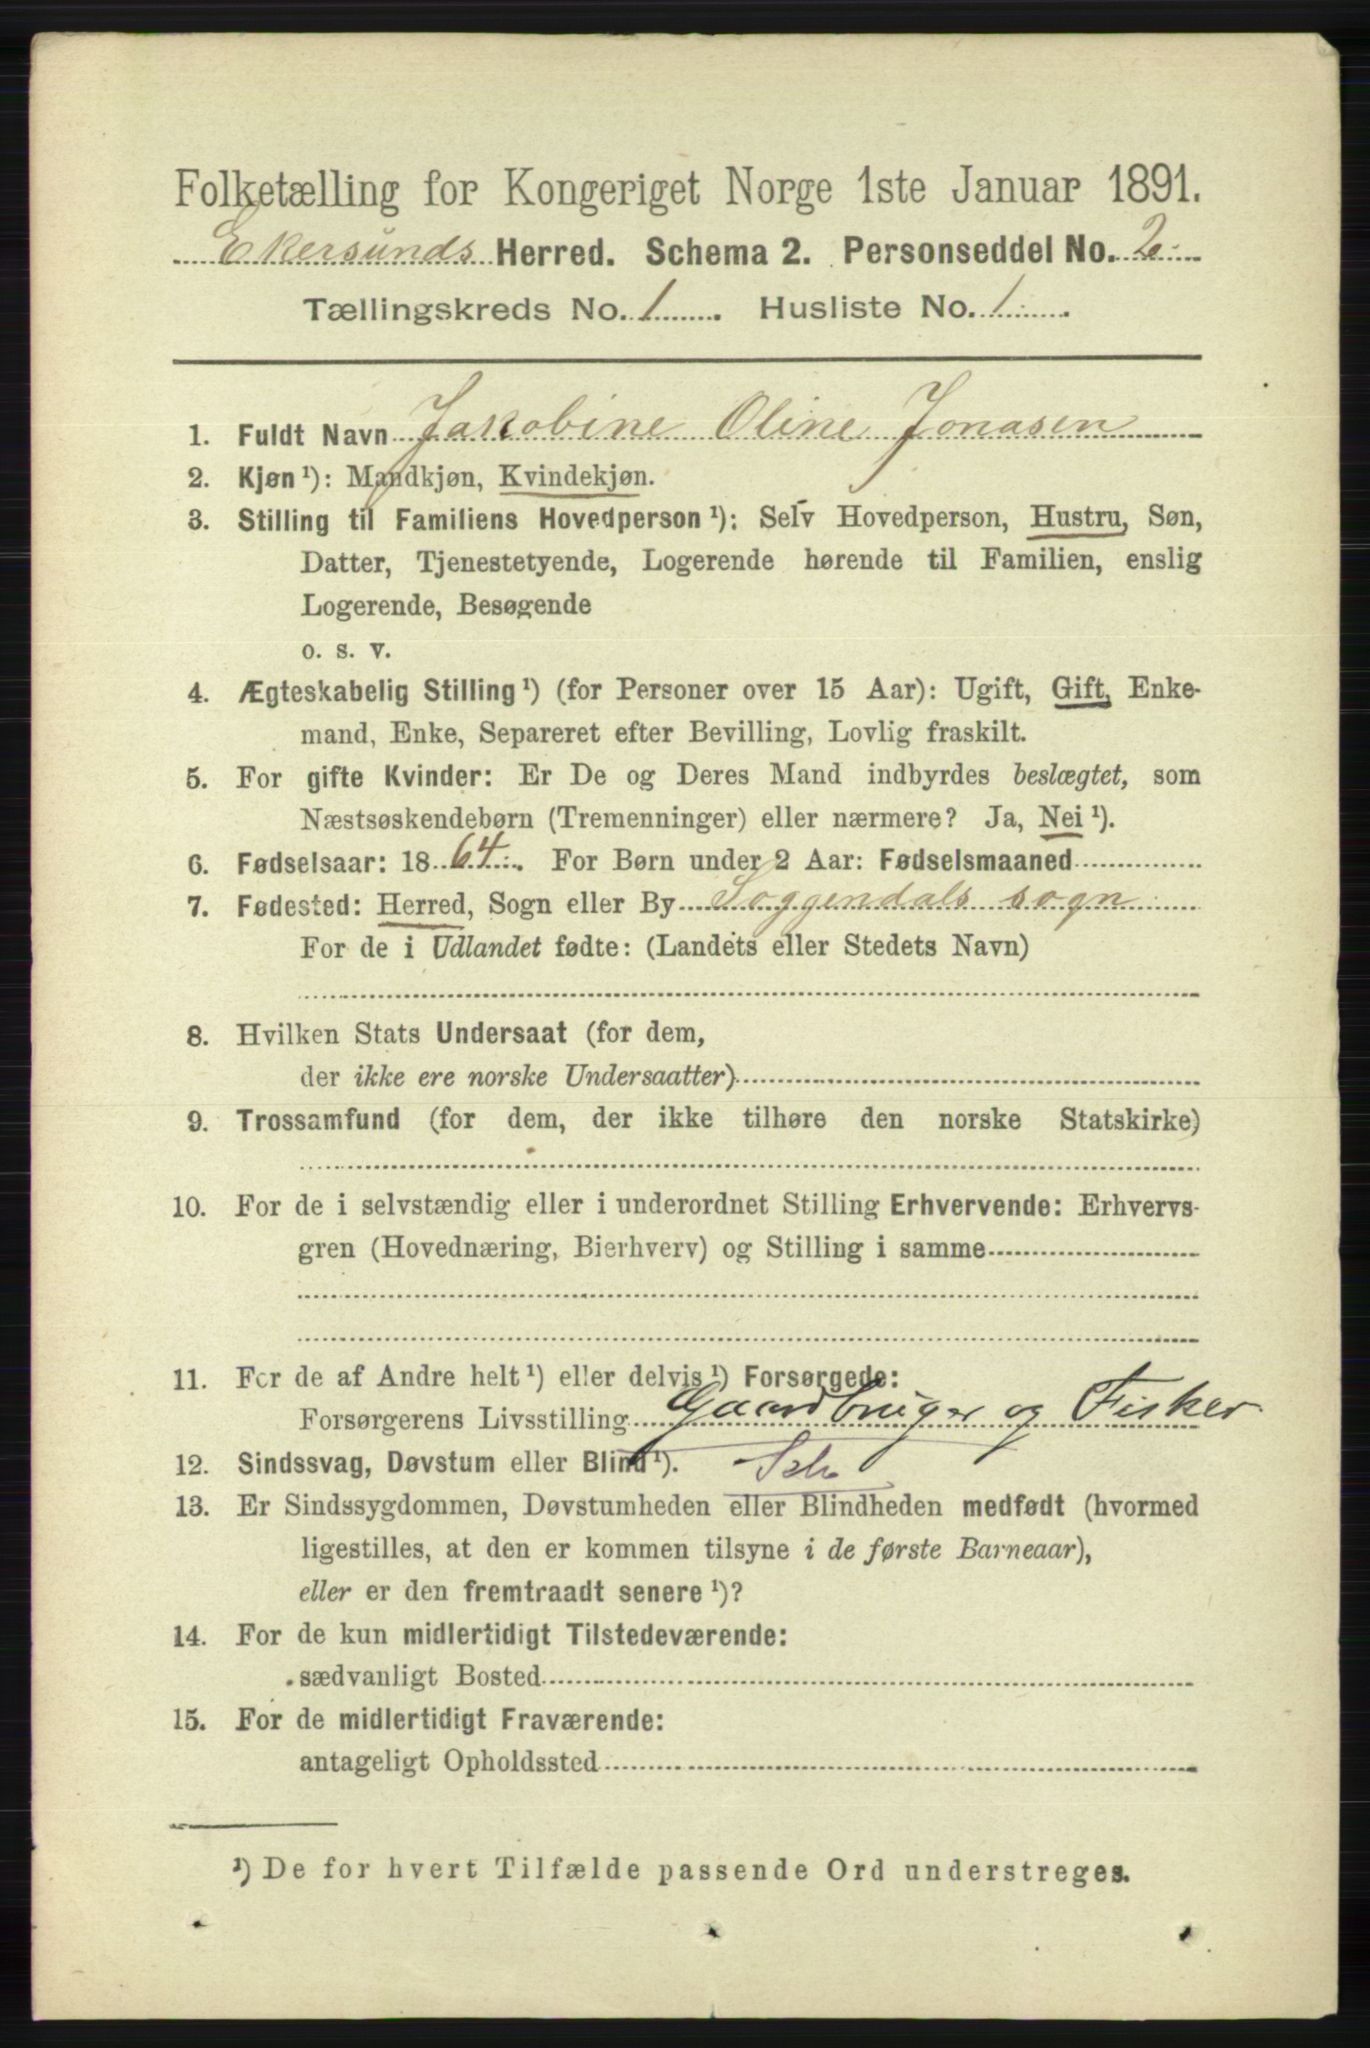 Folketælling for Kongeriget Norge 1ste Januar 1891.
Ekersunds Herred. Schema 2. Personseddel No. 2.
Tællingskreds No. 1. Husliste No. 1.
1. Fuldt Navn Jakobine Oline Jonasen
2. Kjøn ¹): Mandkjøn, Kvindekjøn.
3. Stilling til Familiens Hovedperson ¹): Selv Hovedperson, Hustru, Søn,
Datter, Tjenestetyende, Logerende hørende til Familien, enslig
Logerende, Besøgende
o. s. v.
4. Ægteskabelig Stilling ¹) (for Personer over 15 Aar): Ugift, Gift, Enke-
mand, Enke, Separeret efter Bevilling, Lovlig fraskilt.
5. For gifte Kvinder: Er De og Deres Mand indbyrdes beslægtet, som
Næstsøskendebørn (Tremenninger) eller nærmere? Ja, Nei ¹).
6. Fødselsaar: 1864. For Børn under 2 Aar: Fødselsmaaned
7. Fødested: Herred, Sogn eller By Soggendals sogn
For de i Udlandet fødte: (Landets eller Stedets Navn)
8. Hvilken Stats Undersaat (for dem,
der ikke ere norske Undersaatter)
9. Trossamfund (for dem, der ikke tilhøre den norske Statskirke)
10. For de i selvstændig eller i underordnet Stilling Erhvervende: Erhvervs-
gren (Hovednæring, Bierhverv) og Stilling i samme
11. For de af Andre helt ¹) eller delvis ¹) Forsørgede:
Forsørgerens Livsstilling Gaardbruger og Fisker
12. Sindssvag, Døvstum eller Blind ¹). Selv
13. Er Sindssygdommen, Døvstumheden eller Blindheden medfødt (hvormed
ligestilles, at den er kommen tilsyne i de første Barneaar),
eller er den fremtraadt senere ¹)?
14. For de kun midlertidigt Tilstedeværende:
sædvanligt Bosted
15. For de midlertidigt Fraværende:
antageligt Opholdssted
¹) De for hvert Tilfælde passende Ord understreges.